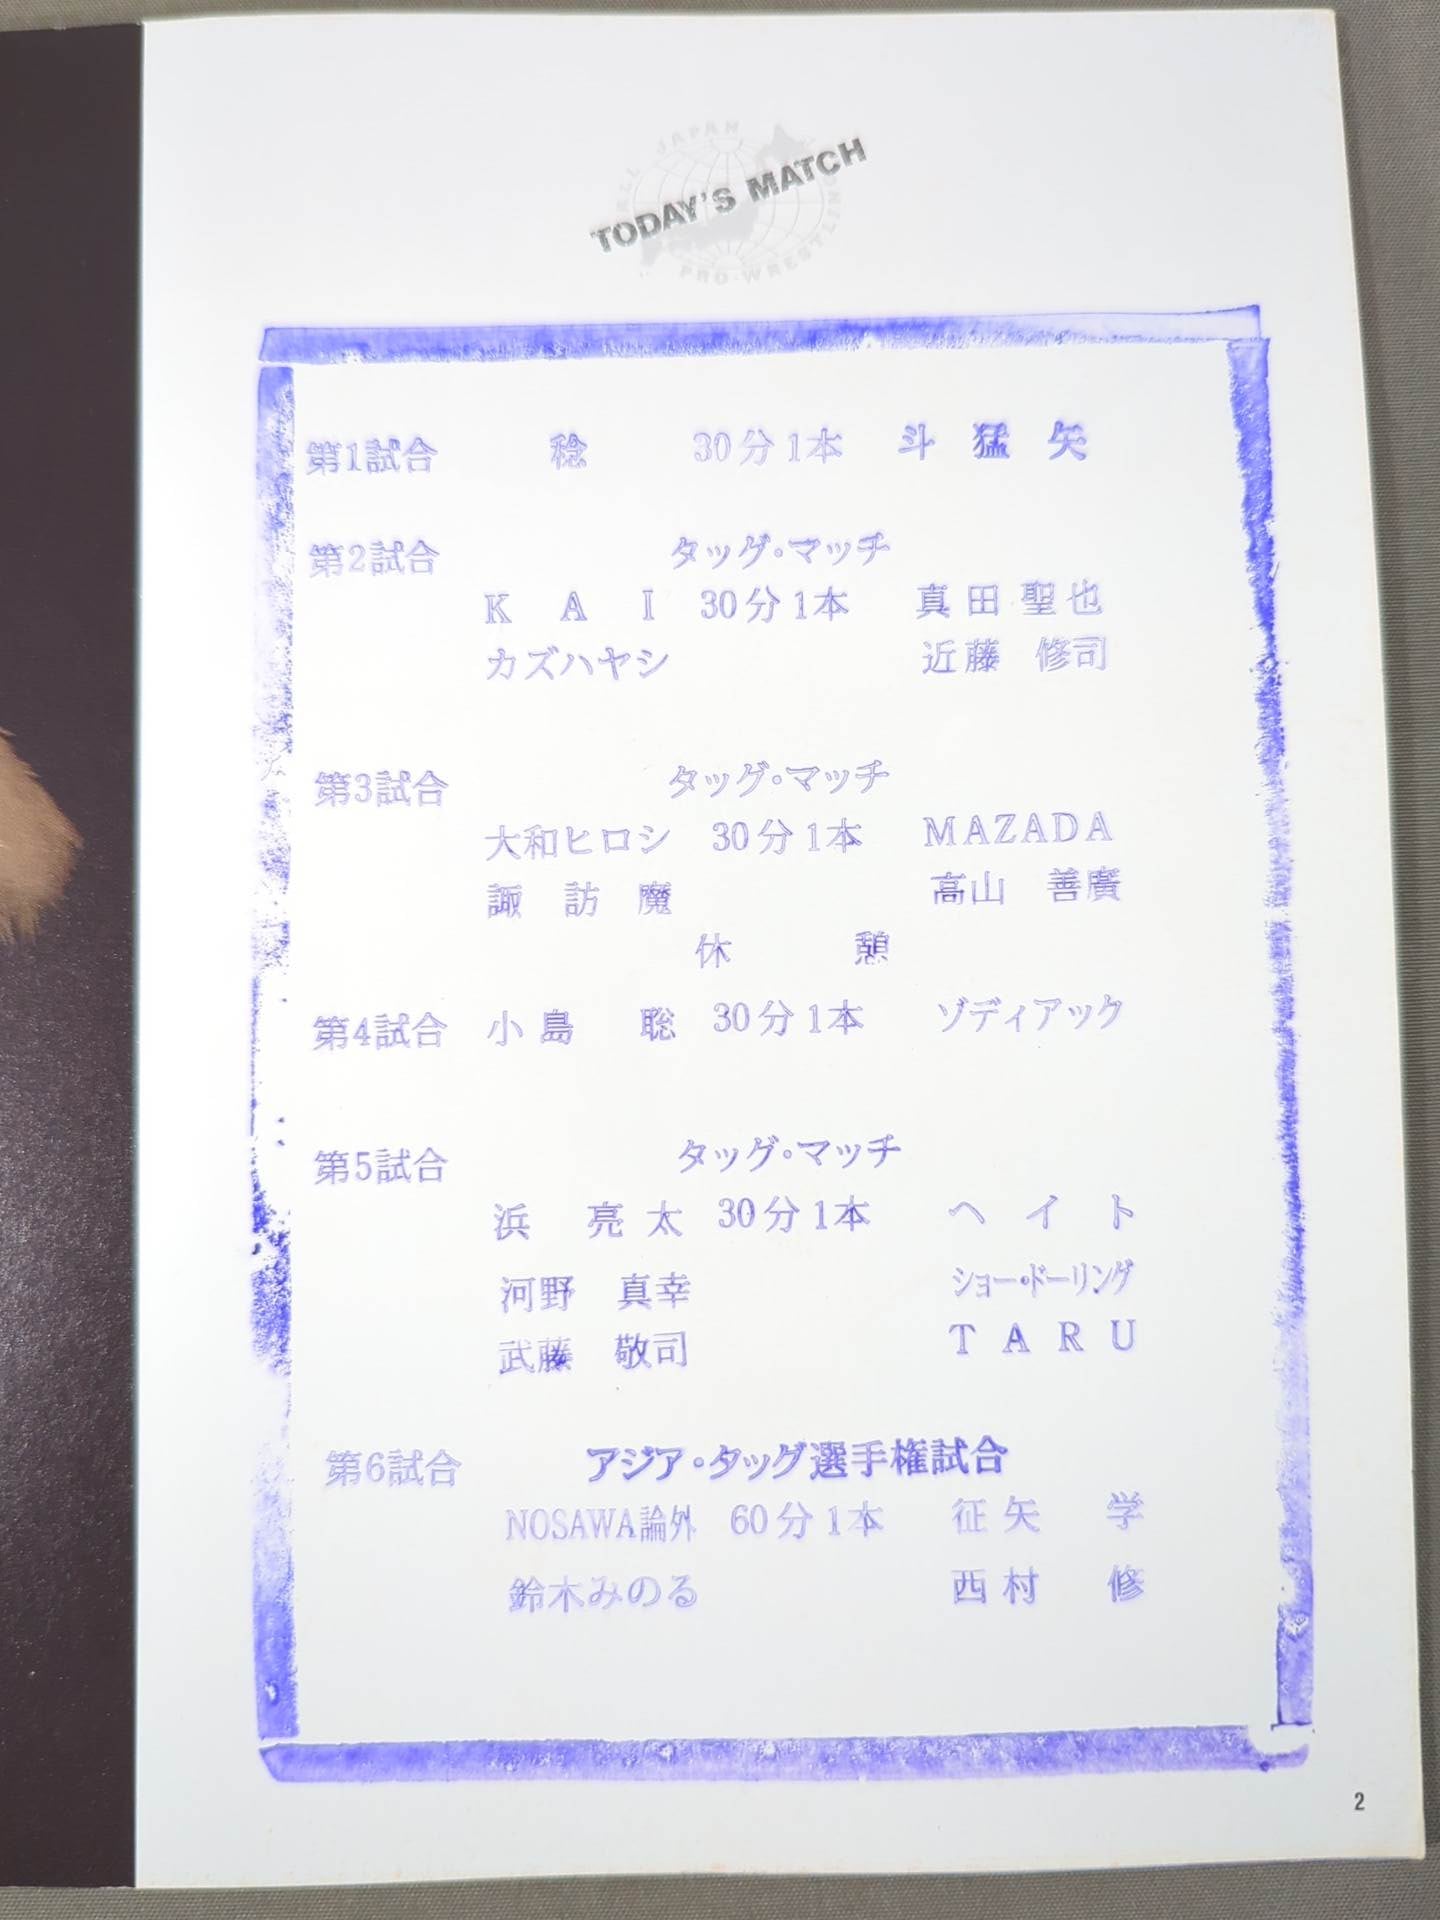 ALL JAPAN
TODAY'S MATCH
PRO-WRESTLING
第1試合 稔 30分1本 斗猛矢
第2試合 タッグ・マッチ
KAI 30分1本 真田聖也
カズハヤシ 近藤 修司
第3試合 タッグ・マッチ
大和ヒロシ 30分1本 MAZADA
諏訪魔 高山 善廣
休憩
第4試合 小島 聡 30分1本 ゾディアック
第5試合 タッグ・マッチ
浜 亮太 30分1本 ヘイト
河野 真幸 ショー・ドーリング
武藤 敬司 TARU
第6試合 アジア・タッグ選手権試合
NOSAWA論外 60分1本 征矢 学
鈴木みのる 西村 修
2